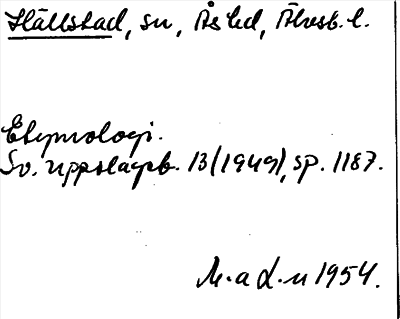 Hällstad, sn, Ås hd, Älvsb. l.
Etymologi.
Sv. uppslagsb. 13 (1949), sp. 1187.
1954.